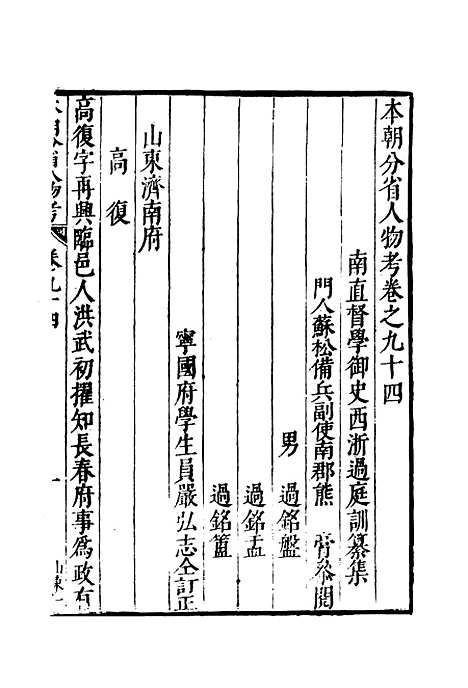 本朝分省人物考卷之九十四
南直督學御史西浙過庭訓纂集
門人蘇松備兵副使南郡熊 膏參閱
男 過銘盤
過銘盂
過銘簠
寧國府學生員嚴弘志仝訂正
山東濟南府
高復
高復字再興臨邑人洪武初擢知長春府事為政有
本朝分省人物考 卷九十四 一 山東一